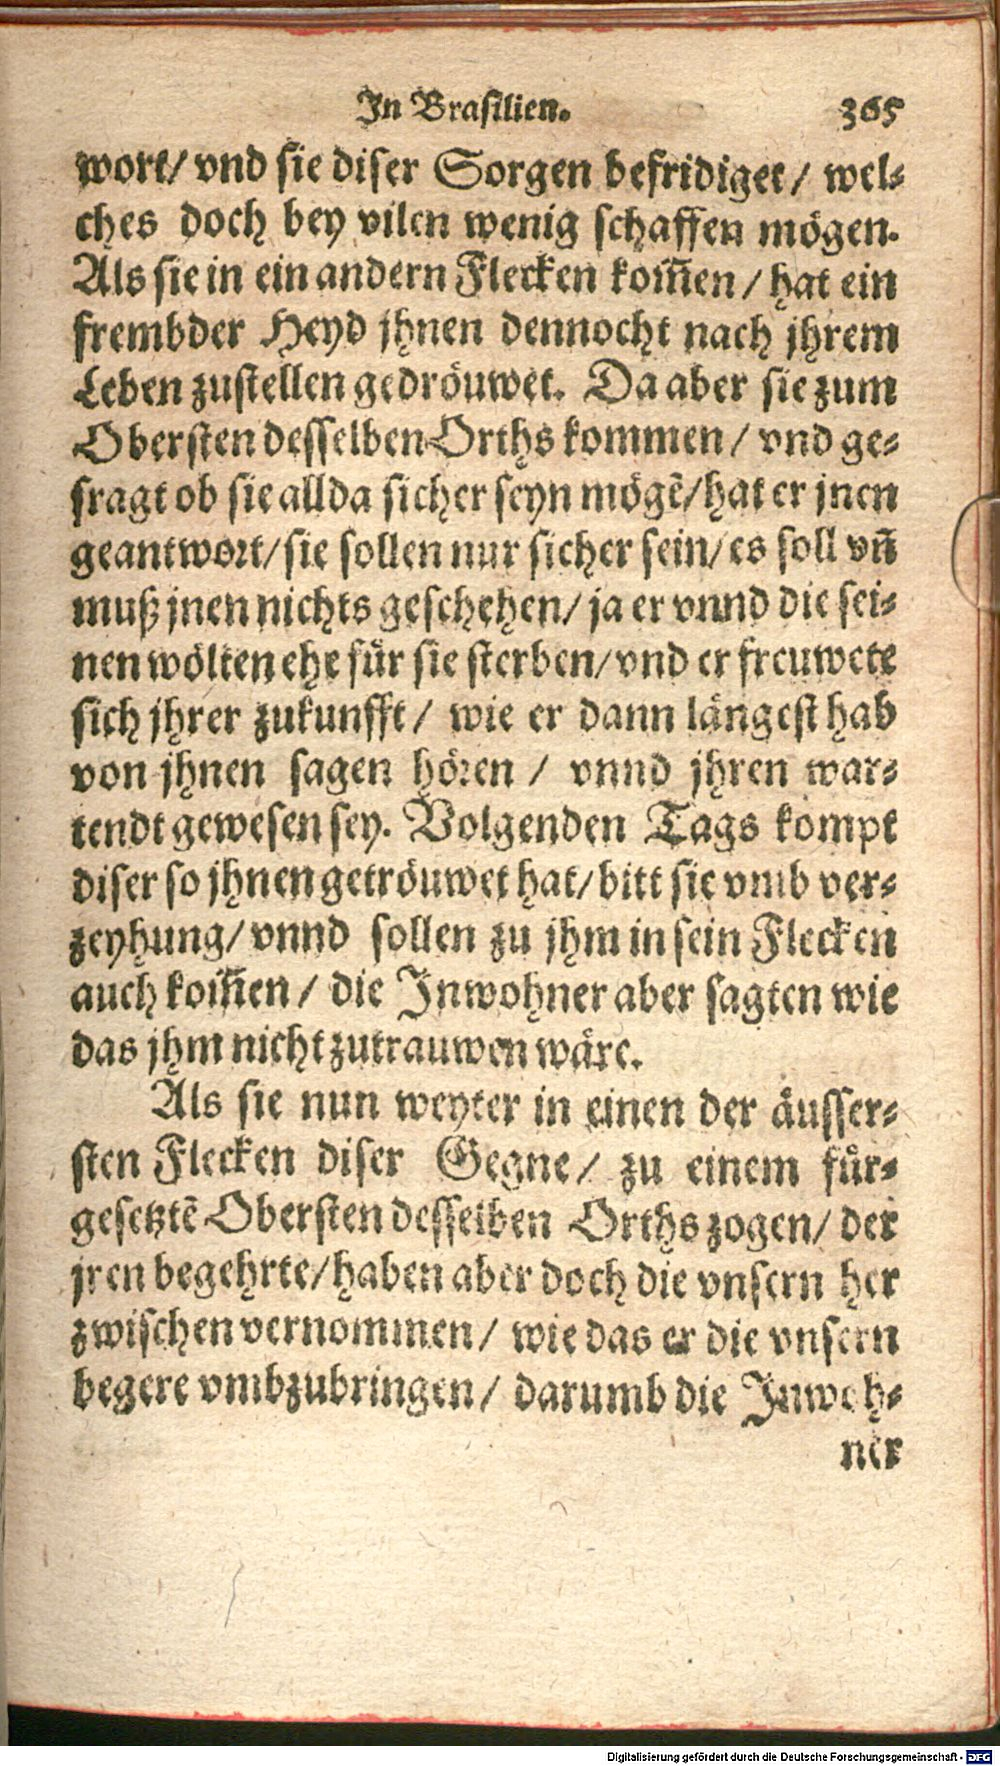 In Brasilien. 365
wort/ vnd sie diser Sorgen befridiget/ wel-
ches doch bey vilen wenig schaffen mögen.
Als sie in ein andern Flecken kom̃en/ hat ein
frembder Heyd jhnen dennocht nach jhrem
Leben zustellen gedröuwet. Da aber sie zum
Obersten desselben Orths kommen/ vnd ge-
fragt ob sie allda sicher seyn mögẽ/ hat er jnen
geantwort/ sie sollen nur sicher sein/ es soll vñ
muß jnen nichts geschehen/ ja er vnnd die sei-
nen wölten ehe für sie sterben/ vnd er freuwete
sich jhrer zukunfft/ wie er dann längest hab
von jhnen sagen hören/ vnnd jhren war-
tendt gewesen sey. Volgenden Tags kompt
diser so jhnen getröuwet hat/ bitt sie vmb ver-
zeyhung/ vnnd sollen zu jhm in sein Flecken
auch kom̃en/ die Inwohner aber sagten wie
das jhm nicht zutrauwen wäre.
Als sie nun weyter in einen der äusser-
sten Flecken diser Gegne/ zu einem für-
gesetztẽ Obersten desselben Orths zogen/ der
jren begehrte/ haben aber doch die vnsern her
zwischen vernommen/ wie das er die vnsern
begere vmbzubringen/ darumb die Inwoh-
ner
Digitalisierung gefördert durch die Deutsche Forschungsgemeinschaft - DFG